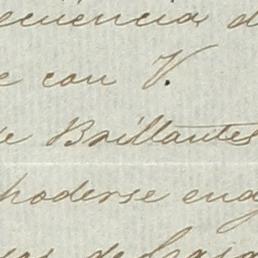 ecuencia d
e con V.
e Brillantes
poderse eng
de